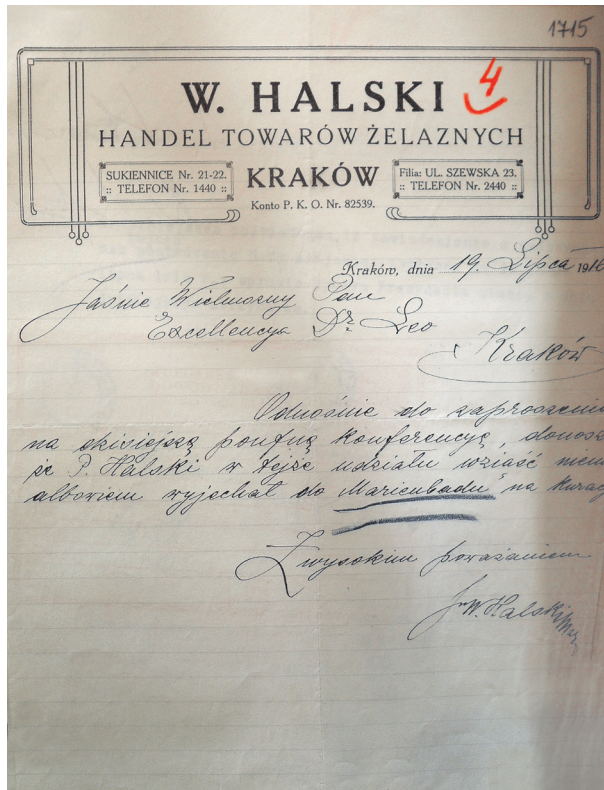 1715
W. HALSKI
4
HANDEL TOWARÓW ŻELAZNYCH
SUKIENNICE Nr. 21-22.
:: TELEFON Nr. 1440 ::
KRAKÓW
Konto P. K. O. Nr. 82539.
Filia: UL. SZEWSKA 23.
:: TELEFON Nr. 2440 ::
Kraków, dnia 19. Lipca 191
Jaśnie Wielmożny Pan
Excellencya Dr. Leo
Kraków
Odnośnie do zaproszenia
na dzisiejszą poufną konferencyę, donosz
że P. Halski w tejże udziału wziaść niem
albowiem wyjechał do „Marienbadu" na kurac
Z wysokim poważaniem
W. Halski